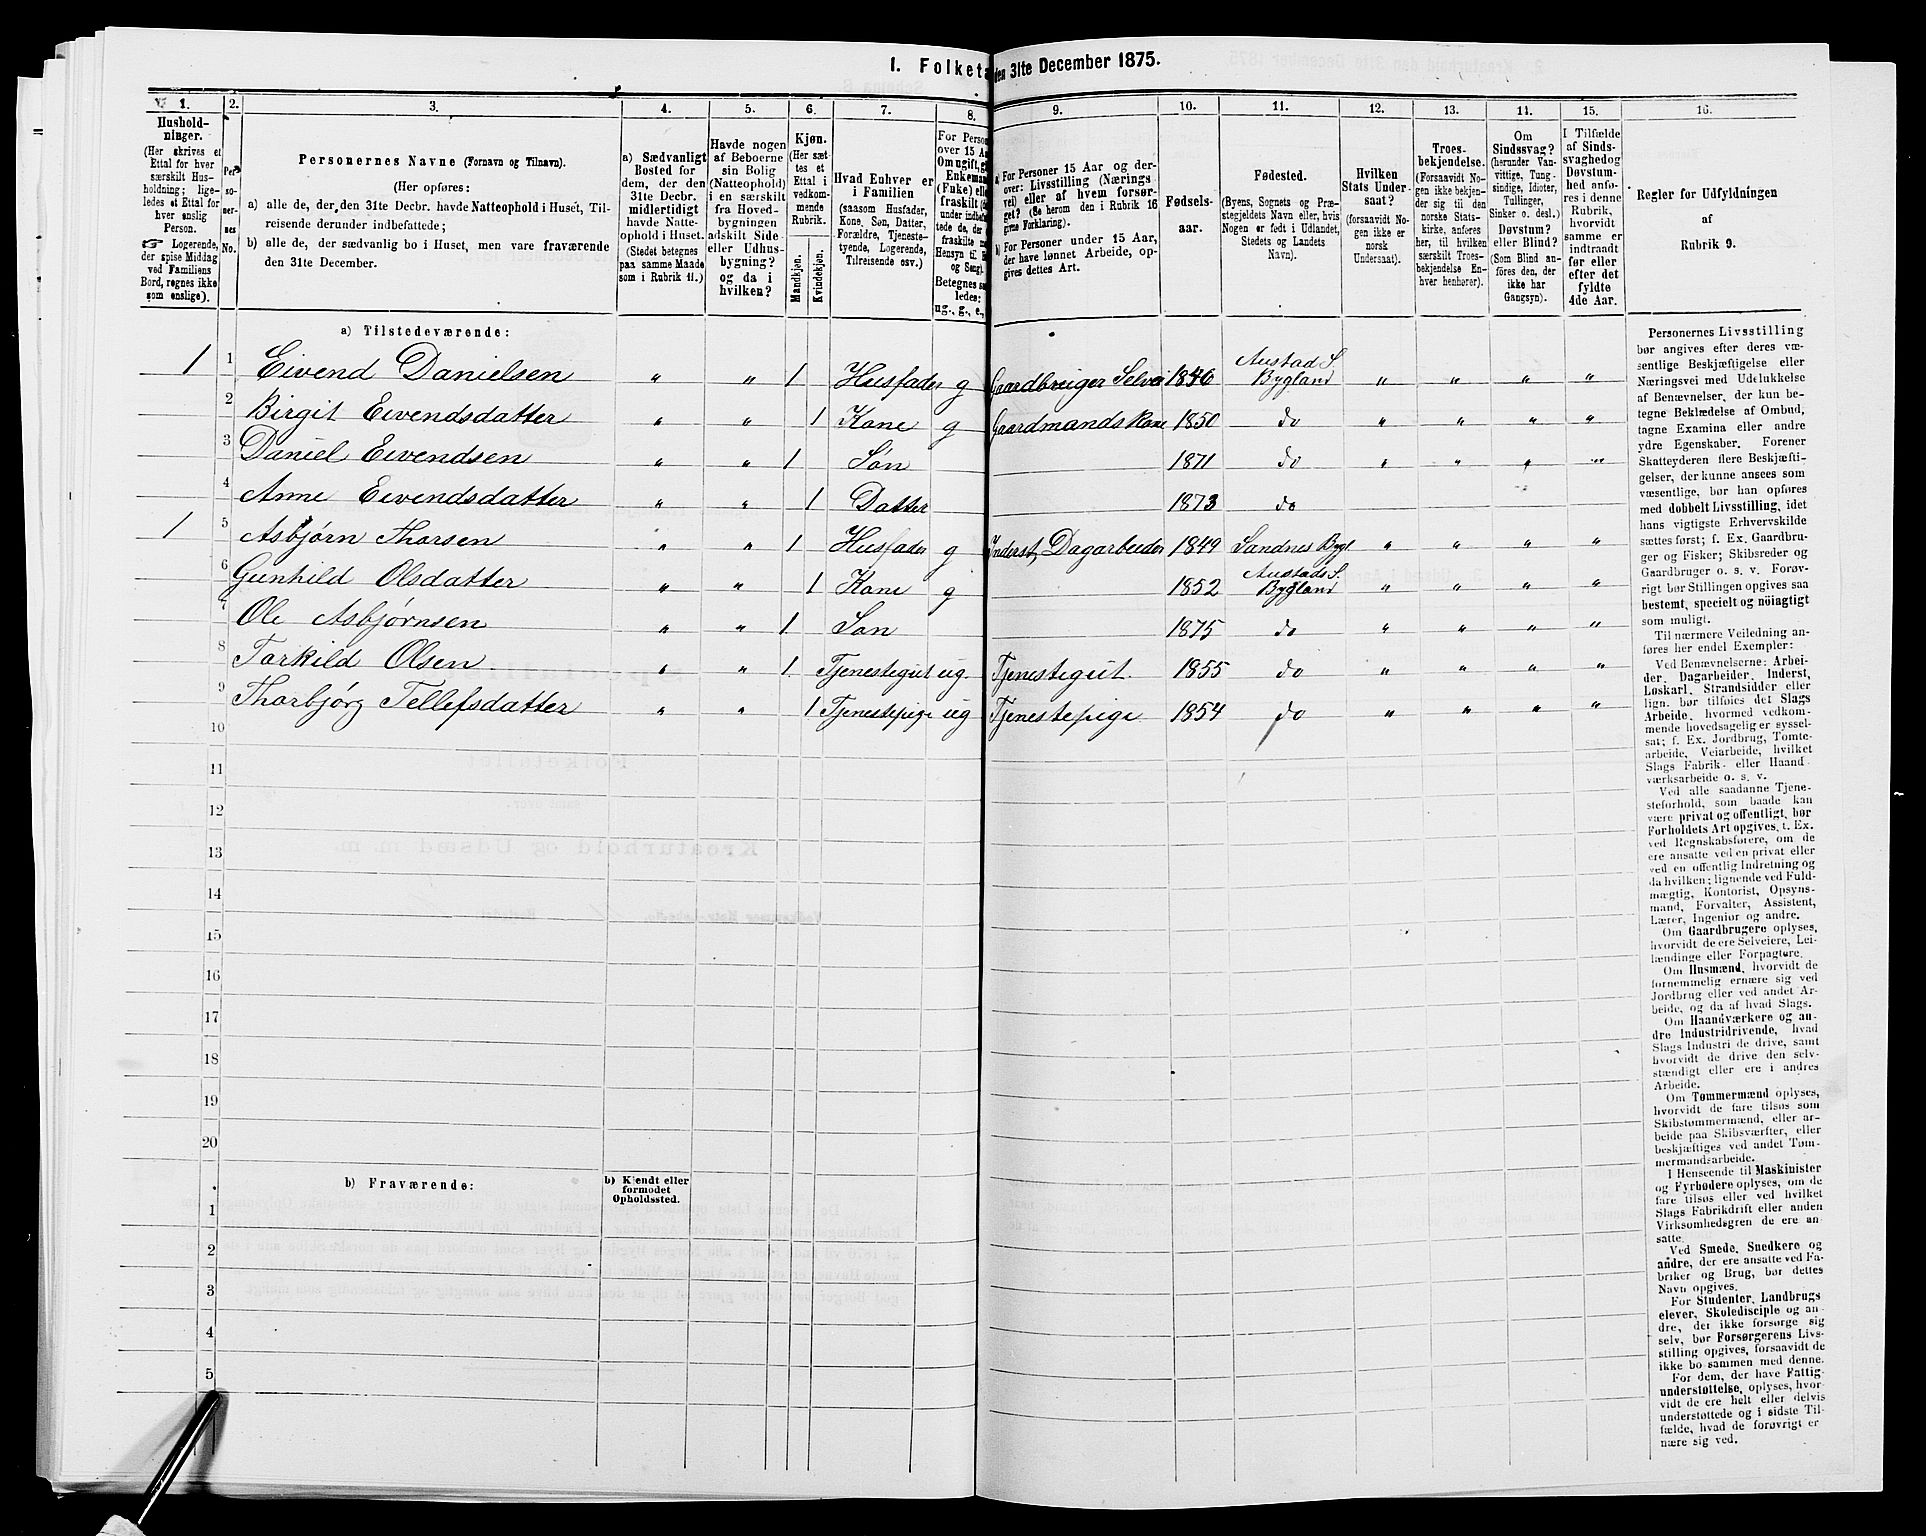 I. Folketa
den 31te December 1875.
1. 2. 3. 4. 5. 6. 7. 8. 9. 10. 11. 12. 13. 14. 15. 16.
Hushold-
ninger.
(Her skrives et
Ettal for hver
særskilt Hus-
holdning; lige-
ledes et Ettal for
hver enslig
Person.
☞ Logerende,
der spise Middag
ved Familiens
Bord, regnes ikke
som enslige).
Per-
so-
ner-
nes
No.
Personernes Navne (Fornavn og Tilnavn).
(Her opføres:
a) alle de, der den 31te Decbr. havde Natteophold i Huset, Til-
reisende derunder indbefattede;
b) alle de, der sædvanlig bo i Huset, men vare fraværende
den 31te December.
a) Sædvanligt
Bosted for
dem, der den
31te Decbr.
midlertidigt
havde Natte-
ophold i Huset.
(Stedet betegnes
paa samme Maade
som i Rubrik 11.)
Havde nogen
af Beboerne
sin Bolig
(Natteophold)
i en særskilt
fra Hoved-
bygningen
adskilt Side-
eller Udhus-
bygning?
og da i
hvilken?
Kjøn.
(Her sæt-
tes et
Ettal i
vedkom-
mende
Rubrik.
Mandkjøn.
Kvindekjøn.
Hvad Enhver er
i Familien
(saasom Husfader,
Kone, Søn, Datter,
Forældre, Tjeneste-
tyende, Logerende,
Tilreisende osv.)
For Person
over 15 A
Om ugift, g
Enkeman
(Fuke) ell
fraskilt (
under indbef
tede de, der
fraskilte
Hensyn til
og Seng).
Betegnes s
ledes:
ug., g., e.,
a) For Personer 15 Aar og der-
over: Livsstilling (Nærings-
vei) eller af hvem forsør-
get? (Se herom den i Rubrik 16
givne Forklaring).
b) For Personer under 15 Aar,
der have lønnet Arbeide, op-
gives dettes Art.
Fødsels-
aar.
Fødested.
(Byens, Sognets og Præ-
stegjeldets Navn eller, hvis
Nogen er født i Udlandet,
Stedets og Landets
Navn).
Hvilken
Stats Under-
saat?
(forsaavidt No-
gen ikke er
norsk
Undersaat).
Troes-
bekjendelse.
(Forsaavidt No-
gen ikke bekjen-
der sig til den
norske Stats-
kirke, anføres
her, til hvilken
særskilt Troes-
bekjendelse En-
hver henhører).
Om
Sindssvag?
(herunder Van-
vittige, Tung-
sindige, Idioter,
Tullinger,
Sinker o. desl.)
Døvstum?
eller Blind?
(Som Blind an-
føres den, der
ikke har
Gangsyn).
I Tilfælde
af Sinds-
svaghed og
Døvstum-
hed anfø-
res i denne
Rubrik,
hvorvidt
samme er
indtraadt
før eller
efter det
fyldte
4de Aar.
Regler for Udfyldningen
af
Rubrik 9.
a) Tilstedeværende:
1 1 Eivend Danielsen " " 1 Husfader g Gaardbruger Selvei 1846 Austad S. Bygland " " " "
2 Birgit Eivendsdatter " " 1 Kone g Gaardmands Kone 1850 do " " " "
3 Daniel Eivendsen " " 1 Søn 1871 do " " " "
4 Anne Eivendsdatter " " 1 Datter 1873 do
1 5 Asbjørn Thorsen " " 1 Husfader g Inderst, Dagarbeider 1849 Sandnes Bygl " " " "
6 Gunhild Olsdatter " " 1 Kone g 1852 Austads S. Bygland " " " "
7 Ole Asbjørnsen " " 1 Søn 1875 do " " " "
8 Tarkild Olsen " " 1 Tjenestegut ug. Tjenestegut. 1855 do " " " "
9 Thorbjørg Tellefsdatter " " 1 Tjenestepige ug Tjenestepige 1854 do " " " "
10
11
12
13
14
15
16
17
18
19
20
b) Fraværende:
b) Kjendt eller
formodet
Opholdssted.
1
2
3
4
5
Personernes Livsstilling
bør angives efter deres væ-
sentlige Beskjæftigelse eller
Næringsvei med Udelukkelse
af Benævnelser, der kun be-
tegne Beklædelse af Ombud,
tagne Examina eller andre
ydre Egenskaber. Forener
Skatteyderen flere Beskjæfti-
gelser, der kunne ansees som
væsentlige, bør han opføres
med dobbelt Livsstilling, idet
hans vigtigste Erhvervskilde
sættes først; f. Ex. Gaardbru-
ger og Fisker; Skibsreder og
Gaardbruger o. s. v. Forøv-
rigt bør Stillingen opgives saa
bestemt, specielt og nöiagtigt
som muligt.
Til nærmere Veiledning an-
føres her endel Exempler:
Ved Benævnelserne: Arbei-
der, Dagarbeider, Inderst,
Løskarl, Strandsidder eller
lign. bør tilføies det Slags
Arbeide, hvormed vedkom-
mende hovedsagelig er syssel-
sat; f. Ex. Jordbrug, Tomte-
arbeide, Veiarbeide, hvilket
Slags Fabrik- eller Haand-
værksarbeide o. s. v.
Ved alle saadanne Tjene-
steforhold, som baade kan
være privat og offentligt, bør
Forholdets Art opgives, t. Ex.
ved Regnskabsførere, om de
ere ansatte ved en privat eller
ved en offentlig Indretning og
da hvilken; lignende ved Fuld-
mægtig, Kontorist, Opsyns-
mand, Forvalter, Assistent,
Lærer, Ingeniør og andre.
Om Gaardbrugere oplyses,
hvorvidt de ere Selveiere, Lei-
lændinge eller Forpagtere.
Om Husmænd, hvorvidt de
fornemmelig ernære sig ved
Jordbrug eller ved andet Ar-
beide, og da af hvad Slags.
Om Haandværkere og an-
dre Industridrivende, hvad
Slags Industri de drive, samt
hvorvidt de drive den selv-
stændigt eller ere i andres
Arbeide.
Om Tømmermænd oplyses,
hvorvidt de fare tilsøs som
Skibstømmermænd, eller ar-
beide paa Skibsværfter, eller
beskjæftiges ved andet Tøm-
mermandsarbeide.
I Henseende til Maskinister
og Fyrbødere oplyses, om de
fare tilsøs eller ved hvilket
Slags Fabrikdrift eller anden
Virksomhedsgren de ere an-
satte.
Ved Smede, Snedkere og
andre, der ere ansatte ved Fa-
briker og Brug, bør dettes
Navn opgives.
For Studenter, Landbrugs-
elever, Skoledisciple og an-
dre, der ikke forsørge sig
selv, bør Forsørgerens Livs-
stilling opgives, forsaavidt de
ikke bo sammen med denne.
For dem, der have Fattig-
understøttelse, oplyses, hvor-
vidt de ere helt eller delvis
understøttede og i sidste Til-
fælde, hvad de forøvrigt er
nære sig ved.